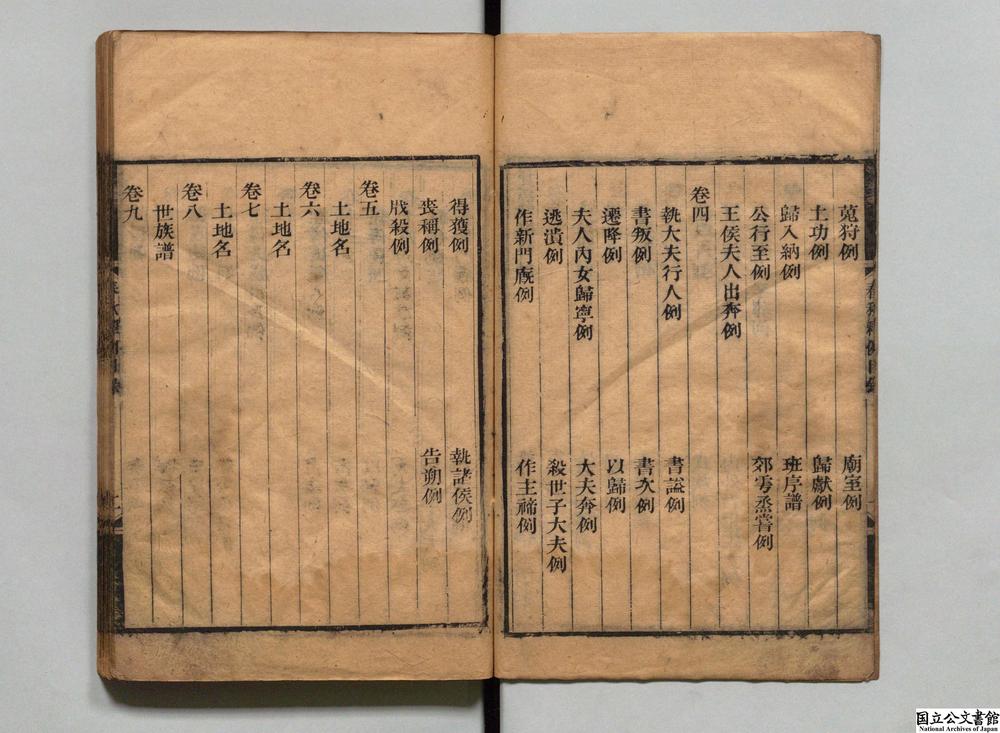 蒐狩例 廟室例
土功例 歸獻例
歸入納例 班序譜
公行至例 郊雩烝嘗例
王侯夫人出奔例
卷四
執大夫行人例 書諡例
書叛例 書次例
遷降例 以歸例
夫人內女歸寧例 大夫奔例
逃潰例 殺世子大夫例
作新門廐例 作主禘例
得獲例 執諸侯例
喪稱例 告朔例
戕殺例
卷五
土地名
卷六
土地名
卷七
土地名
卷八
世族譜
卷九
国立公文書館
National Archives of Japan